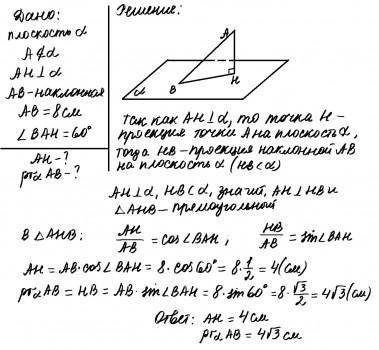 Дано:
плоскость α
A ∉ α
AH ⊥ α
AB-наклонная
AB = 8 см
∠BAH = 60°
AH - ?
prα AB - ?
Решение:
A
B
H
α
Так как AH ⊥ α, то точка H -
проекция точки A на плоскость α,
тогда HB - проекция наклонной AB
на плоскость α (HB ⊂ α)
AH ⊥ α, HB ⊂ α, значит, AH ⊥ HB и
△AHB - прямоугольный
В △AHB: AH/AB = cos∠BAH, HB/AB = sin∠BAH
AH = AB·cos∠BAH = 8·cos60° = 8·1/2 = 4 (см)
prα AB = HB = AB·sin∠BAH = 8·sin60° = 8·√3/2 = 4√3 (см)
Ответ: AH = 4 см
prα AB = 4√3 см